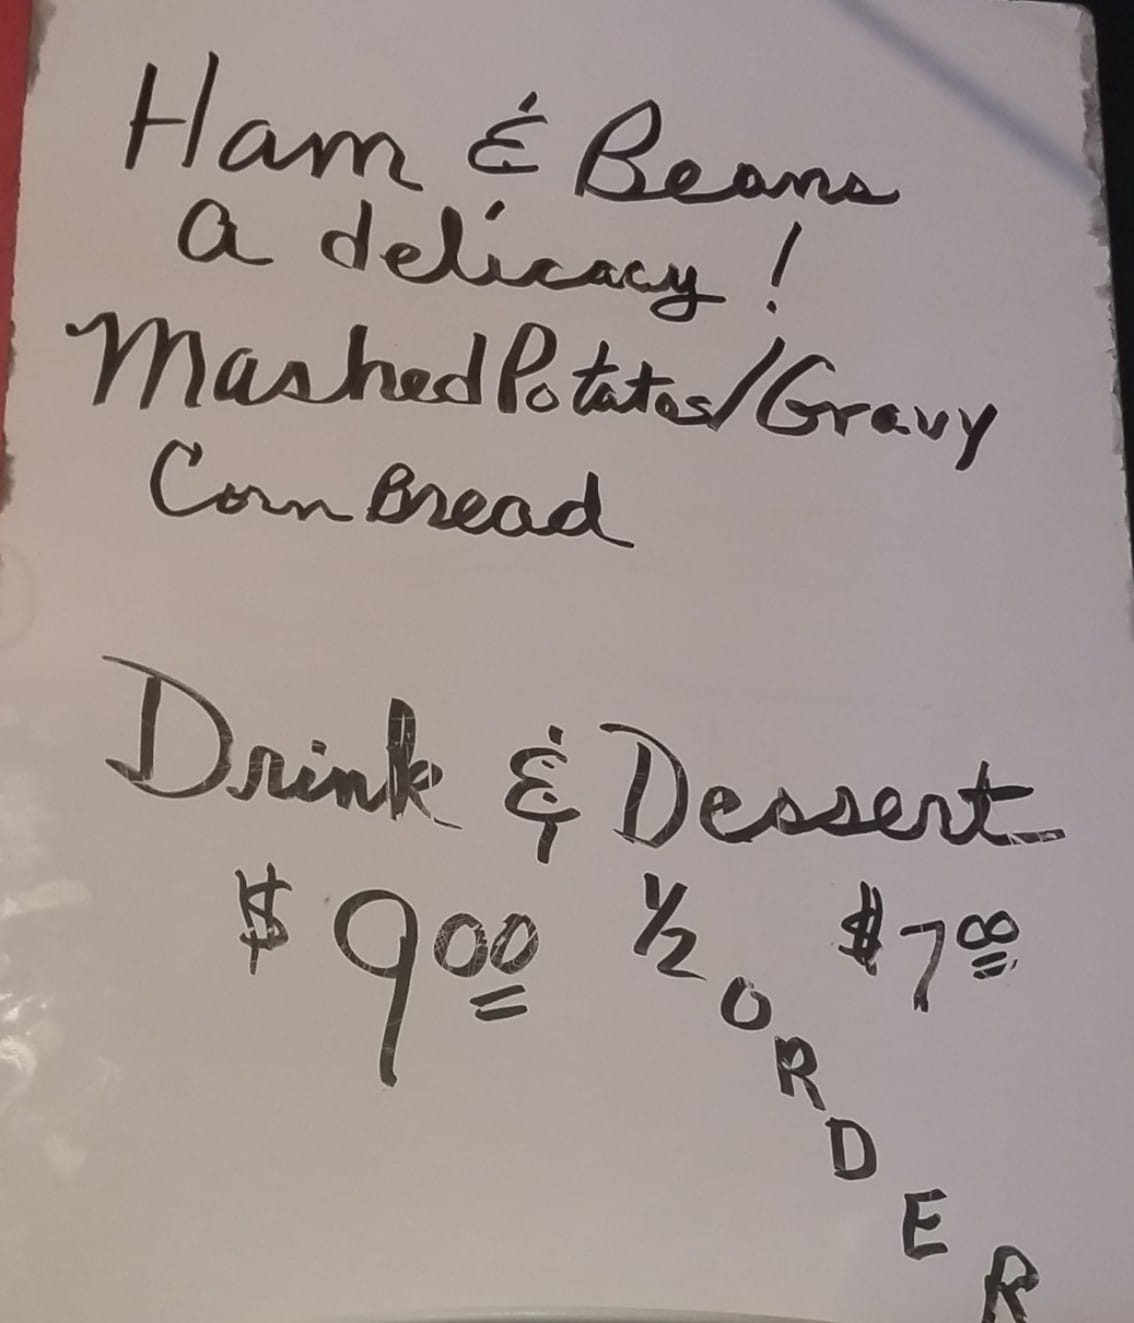 Ham & Beans
a delicacy!
Mashed Potatos/Gravy
Corn Bread
Drink & Dessert
$9.00 1/2 ORDER $7.00